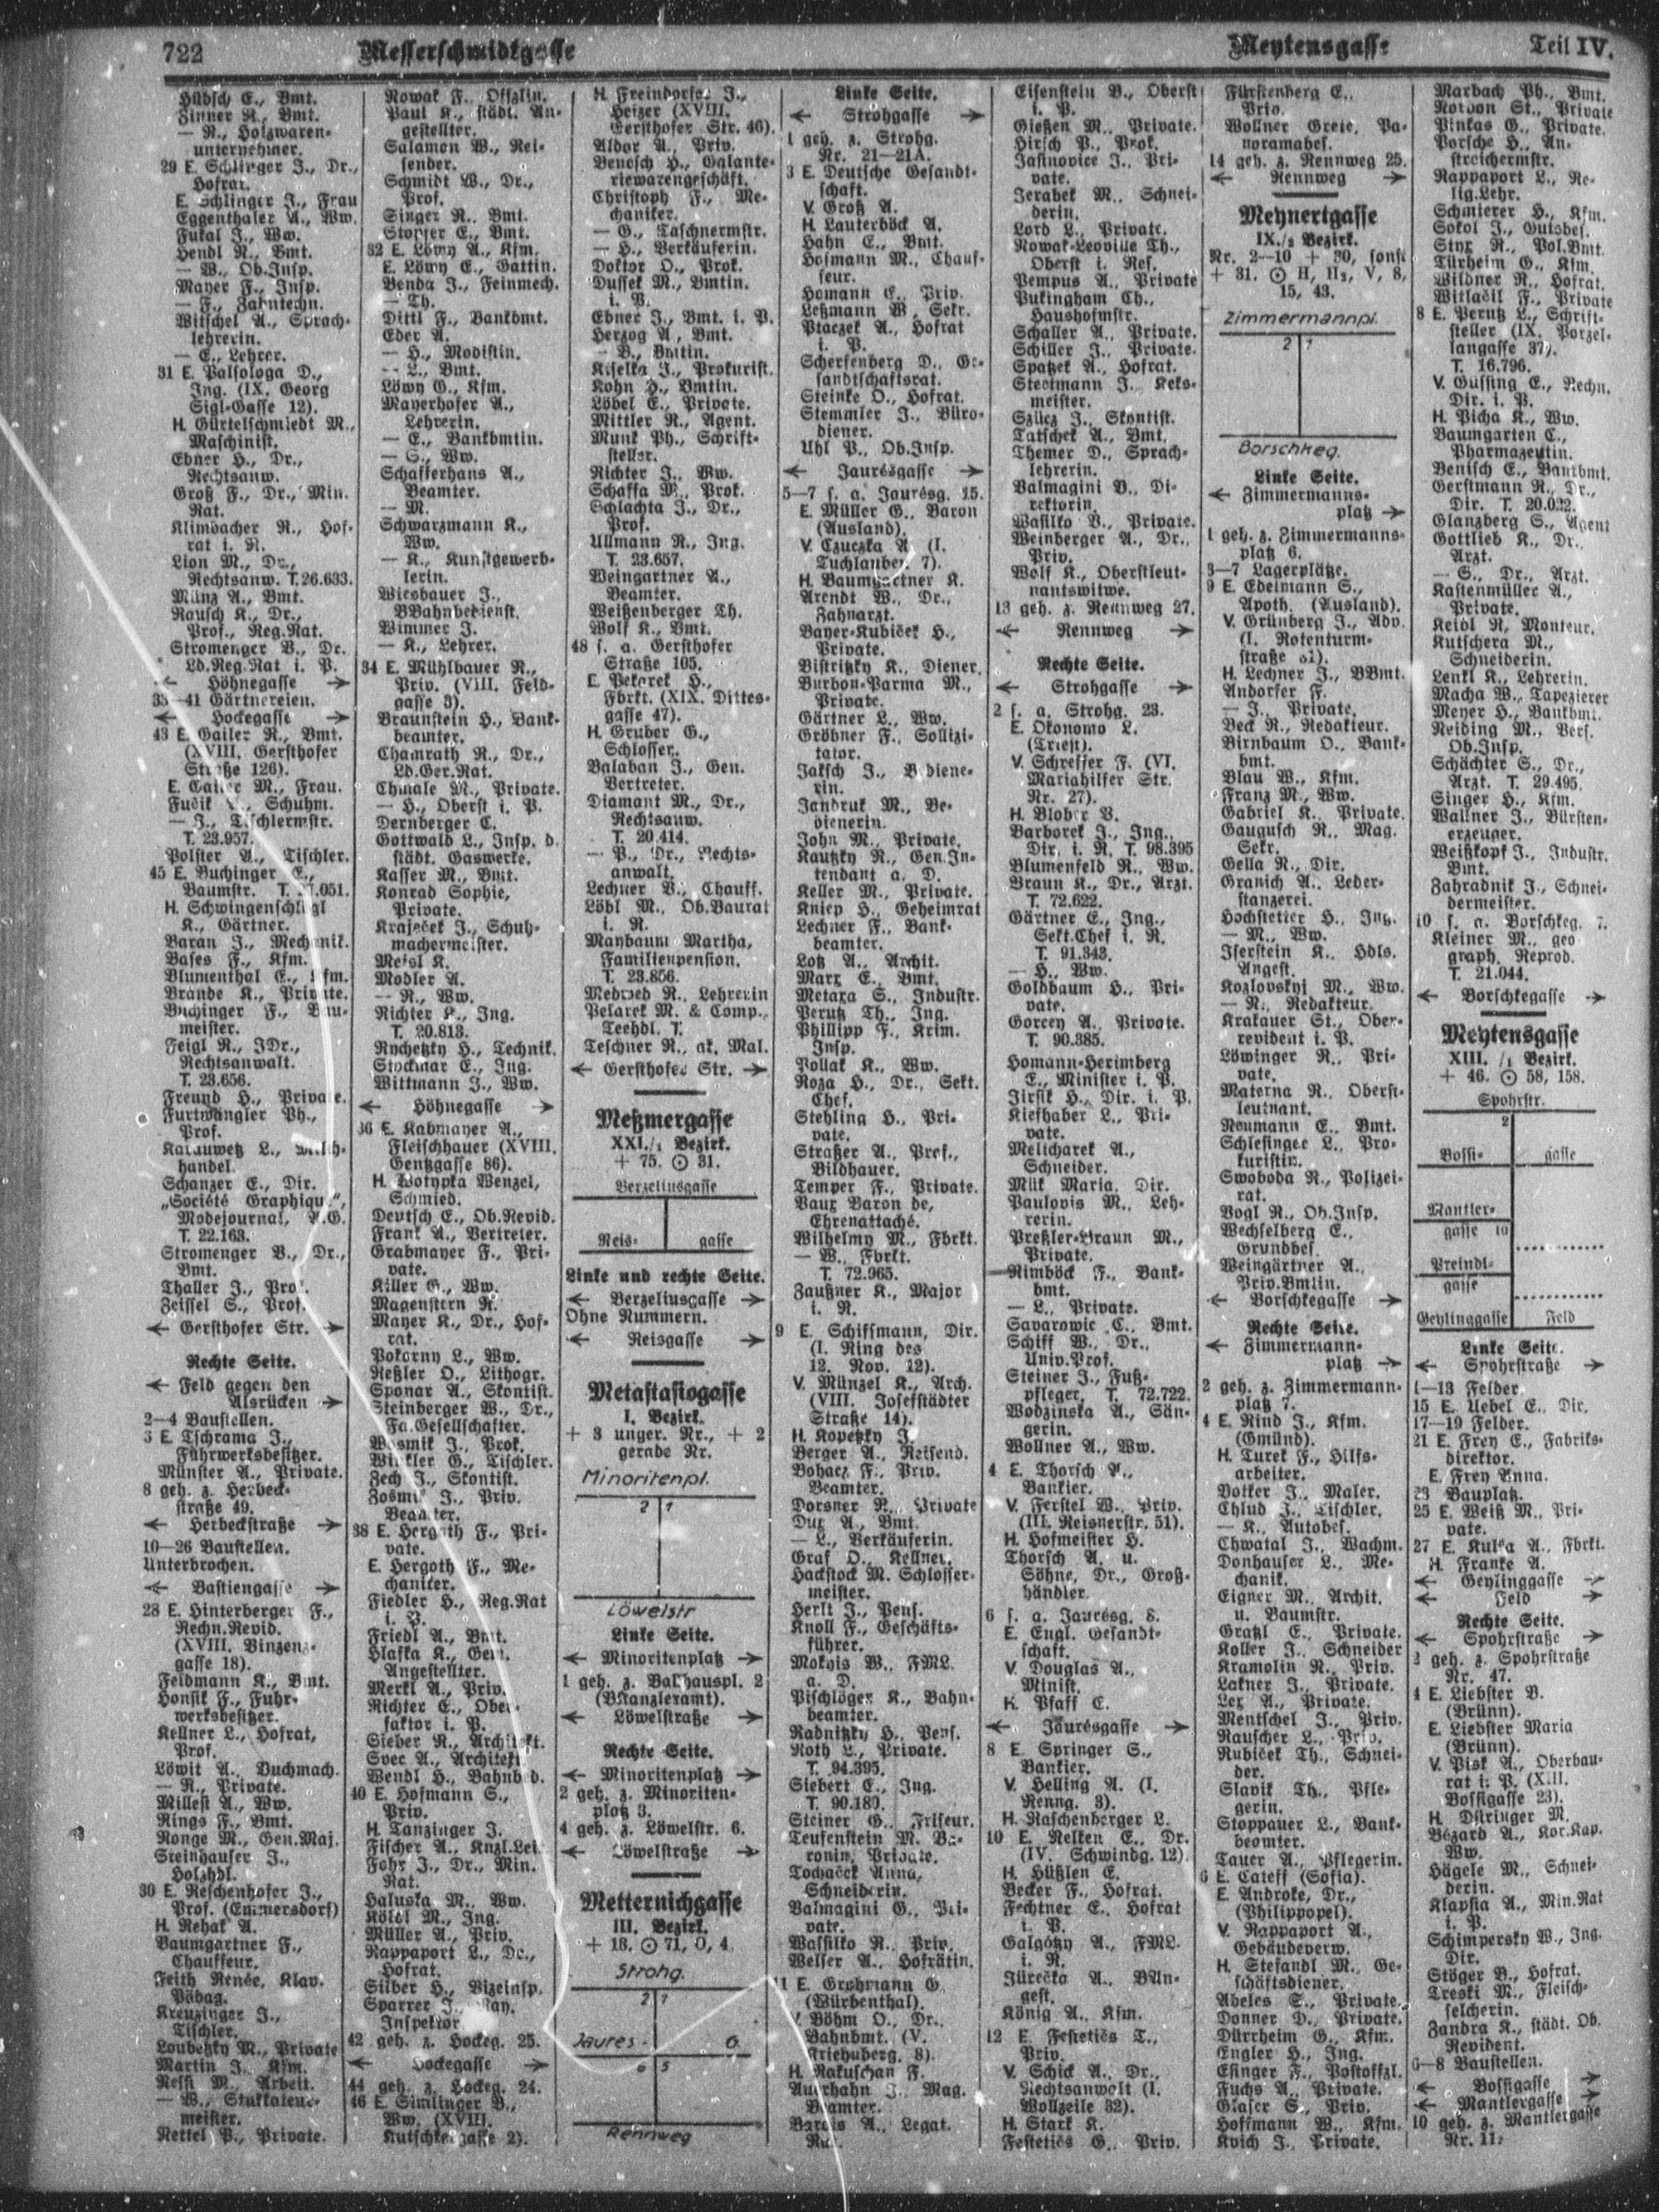 722
Messerschmidtgasse
Meytensgasse
Teil IV.
Hübsch E., Bmt.
Zinner R., Bmt.
— R., Holzwaren-
unternehmer.
29 E. Schlinger J., Dr.,
Hofrat.
E. Schlinger J., Frau
Eggenthaler A., Ww.
Futal J., Ww.
Hendl R., Bmt.
— W., Ob.Insp.
Mayer F., Insp.
— F., Zahntechn.
Witschel A., Sprach-
lehrerin.
— E., Lehrer.
31 E. Palsologa D.,
Ing. (IX. Georg
Sigl-Gasse 12).
H. Gürtelschmiedt M.,
Maschinist.
Ebner H., Dr.,
Rechtsanw.
Groß F., Dr., Min.
Rat.
Klimbacher R., Hof-
rat i. R.
Lion M., Dr.,
Rechtsanw. T. 26.633.
Münz A., Bmt.
Rausch K., Dr.,
Prof., Reg.Rat.
Stromenger V., Dr.
Ld.Reg.Rat i. P.
← Höhnegasse →
33—41 Gärtnereien.
← Hockegasse →
43 E. Gailer R., Bmt.
(XVIII. Gersthofer
Straße 126).
E. Gailer M., Frau.
Fučik, Schuhm.
— J., Tischlermstr.
T. 23.957.
Polster A., Tischler.
45 E. Buchinger E.,
Baumstr. T.
H. Schwingenschlögl
K., Gärtner.
Baran J., Mechanik.
Bases F., Kfm.
Blumenthal E., Kfm.
Brande K., Private.
Buchinger F., Bau-
meister.
Feigl R., JDr.,
Rechtsanwalt.
T. 23.656.
Freund H., Private.
Furtwängler Ph.,
Prof.
Karauwetz L., Milch-
handel.
Schanzer E., Dir.
„Société Graphique",
Modejournal, A.G.
T. 22.163.
Stromenger V., Dr.,
Bmt.
Thaller J., Prof.
Zeissel S., Prof.
← Gersthofer Str. →
Rechte Seite.
← Feld gegen den
Alsrücken →
2—4 Baustellen.
6 E. Tschrama J.,
Fuhrwerksbesitzer.
Münster A., Private.
8 geh. z. Herbeck-
straße 49.
← Herbeckstraße →
10—26 Baustellen.
Unterbrochen.
← Bastiengasse →
28 E. Hinterberger F.,
Rechn.Revid.
(XVIII. Vinzenz-
gasse 18).
Feldmann K., Bmt.
Honsik F., Fuhr-
werksbesitzer.
Kellner L., Hofrat,
Prof.
Löwit A., Buchmach.
— R., Private.
Millest A., Ww.
Rings F., Bmt.
Ronge M., Gen.Maj.
Steinhauser J.,
Holzhdl.
30 E. Reschenhofer J.,
Prof. (Emmersdorf)
H. Rehak A.
Baumgartner F.,
Chauffeur.
Feith Renée, Klav.
Pädag.
Kreuzinger J.,
Tischler.
Loubetzky M., Private
Martin J., Kfm.
Ressi M., Arbeit.
— W., Stukkateur-
meister.
Rettel P., Private.
Nowak F., Offzlin.
Paul K., städt. An-
gestellter.
Salamon W., Rei-
sender.
Schmidt W., Dr.,
Prof.
Singer R., Bmt.
Stopfer E., Bmt.
32 E. Löwy A., Kfm.
E. Löwy E., Gattin.
Benda J., Feinmech.
— Th.
Dittl F., Bankbmt.
Eder A.
— H., Modistin.
— L., Bmt.
Löwy G., Kfm.
Mayerhofer A.,
Lehrerin.
— E., Bankbmtin.
— S., Ww.
Schafferhans A.,
Beamter.
— M.
Schwarzmann K.,
Ww.
— K., Kunstgewerb-
lerin.
Wiesbauer J.,
BBahnbedienst.
Wimmer J.
— K., Lehrer.
34 E. Mühlbauer R.,
Priv. (VIII. Feld-
gasse 3).
Braunstein H., Bank-
beamter.
Chamrath R., Dr.,
Ld.Ger.Rat.
Chmale M., Private.
— H., Oberst i. P.
Dernberger C.
Gottwald L., Insp. d.
städt. Gaswerke.
Kasser M., Bmt.
Konrad Sophie,
Private.
Kraječek J., Schuh-
machermeister.
Meisl K.
Modler A.
— R., Ww.
Richter K., Ing.
T. 20.813.
Rychetzky H., Technik.
Stockmar E., Ing.
Wittmann J., Ww.
← Höhnegasse →
36 E. Kabmayer A.,
Fleischhauer (XVIII.
Gentzgasse 86).
H. Wotypka Wenzel,
Schmied.
Deutsch E., Ob.Revid.
Frank A., Vertreter.
Grabmayer F., Pri-
vate.
Killer G., Ww.
Magenstern R.
Mayer K., Dr., Hof-
rat.
Pokorny L., Ww.
Reßler O., Lithogr.
Sponar A., Skontist.
Steinberger W., Dr.,
Fa.Gesellschafter.
Wosmik J., Prok.
Winkler G., Tischler.
Zech J., Skontist.
Zosmi J., Priv.
Beamter.
38 E. Hergoth F., Pri-
vate.
E. Hergoth F., Me-
chaniker.
Fiedler H., Reg.Rat
i. P.
Friedl A., Bmt.
Hlafka K., Gem.
Angestellter.
Merkl A., Priv.
Richter E., Ober-
faktor i. P.
Sieber R., Architekt.
Svec A., Architekt
Wendl H., Bahnbed.
40 E. Hofmann S.,
Priv.
H. Tanzinger J.
Fischer A., Knzl.Lei.
Fohr J., Dr., Min.
Rat.
Haluska M., Ww.
Kölbl M., Ing.
Müller A., Priv.
Rappaport L., Dr.,
Hofrat.
Silber H., Vizeinsp.
Sparrer J., Ray.
Inspektor.
42 geh. z. Hockeg. 25.
← Hockegasse →
44 geh. z. Hockeg. 24.
46 E. Simlinger V.,
Ww. (XVIII.
Kutschkergasse 2).
H. Freindorfer J.,
Heizer (XVIII.
Gersthofer Str. 46).
Aldor A., Priv.
Benosch H., Galante-
riewarengeschäft.
Christoph F., Me-
chaniker.
— G., Taschnermstr.
— H., Verkäuferin.
Doktor O., Prok.
Dussek M., Bmtin.
i. P.
Ebner J., Bmt. i. P.
Herzog A., Bmt.
— B., Bmtin.
Kiselka J., Prokurist.
Kohn H., Bmtin.
Löbel E., Private.
Mittler R., Agent.
Munk Ph., Schrift-
steller.
Richter J., Ww.
Schaffa M., Prok.
Schlachta J., Dr.,
Prof.
Ullmann R., Ing.
T. 23.657.
Weingartner A.,
Beamter.
Weißenberger Th.
Wolf K., Bmt.
48 s. a. Gersthofer
Straße 105.
E. Pekarek H.,
Fbrkt. (XIX. Dittes-
gasse 47).
H. Gruber G.,
Schlosser.
Balaban J., Gen.
Vertreter.
Diamant M., Dr.,
Rechtsanw.
T. 20.414.
— P., Dr., Rechts-
anwalt.
Lechner V., Chauff.
Löbl M., Ob.Baurat
i. R.
Maybaum Martha,
Familienpension.
T. 23.856.
Medrzed R., Lehrerin
Pelarek M. & Comp.,
Teehdl. T.
Teschner R., ak. Mal.
← Gersthofer Str. →
Meßmergasse
XXI./1 Bezirk.
+ 75. ⊙ 31.
Berzeliusgasse
Reis- gasse
Linke und rechte Seite.
← Berzeliusgasse →
Ohne Nummern.
← Reisgasse →
Metastasiogasse
I. Bezirk.
+ 3 unger. Nr., + 2
gerade Nr.
Minoritenpl.
2 1
Löwelstr
Linke Seite.
← Minoritenplatz →
1 geh. z. Ballhauspl. 2
(BKanzleramt).
← Löwelstraße →
Rechte Seite.
← Minoritenplatz →
2 geh. z. Minoriten-
platz 3.
4 geh. z. Löwelstr. 6.
← Löwelstraße →
Metternichgasse
III. Bezirk.
+ 18. ⊙ 71, O, 4.
Strohg.
2 1
Jaures- G.
6 5
Rennweg
Linke Seite.
← Strohgasse →
1 geh. z. Strohg.
Nr. 21—21A.
3 E. Deutsche Gesandt-
schaft.
V. Groß A.
H. Lauterböck A.
Hahn E., Bmt.
Hofmann M., Chauf-
feur.
Homann E., Priv.
Leßmann W., Sekr.
Ptaczek A., Hofrat
i. P.
Scherfenberg D., Ge-
sandtschaftsrat.
Steinke O., Hofrat.
Stemmler J., Büro-
diener.
Uhl P., Ob.Insp.
← Jaurèsgasse →
5—7 s. a. Jaurèsg. 15.
E. Müller G., Baron
(Ausland).
V. Czuczka A. (I.
Tuchlauben 7).
H. Baumgartner K.
Arendt W., Dr.,
Zahnarzt.
Bayer-Kubiček H.,
Private.
Bistritzky K., Diener.
Burbon-Parma M.,
Private.
Gärtner L., Ww.
Gröbner F., Sollizi-
tator.
Jaksch J., Bediene-
rin.
Jandruk M., Be-
dienerin.
John M., Private.
Kautzky R., Gen.In-
tendant a. D.
Keller M., Private.
Kniep H., Geheimrat
Lechner F., Bank-
beamter.
Lotz A., Archit.
Marx E., Bmt.
Metaxa S., Industr.
Perutz Th., Ing.
Phillipp F., Krim.
Insp.
Pollak K., Ww.
Roza H., Dr., Sekt.
Chef.
Stehling H., Pri-
vate.
Straßer A., Prof.,
Bildhauer.
Temper F., Private.
Vaux Baron de,
Ehrenattaché.
Wilhelmy M., Fbrkt.
— W., Fbrkt.
T. 72.965.
Zaußner K., Major
i. R.
9 E. Schiffmann, Dir.
(I. Ring des
12. Nov. 12).
V. Münzel K., Arch.
(VIII. Josefstädter
Straße 14).
H. Kopetzky J.
Berger A., Reisend.
Bohacz F., Priv.
Beamter.
Dorfner R., Private
Dux A., Bmt.
— L., Verkäuferin.
Graf O., Kellner.
Hackstock M. Schlosser-
meister.
Herlt J., Pens.
Knoll F., Geschäfts-
führer.
Mokois W., FML.
a. D.
Pischlöger K., Bahn-
beamter.
Radnitzky H., Pens.
Roth L., Private.
T. 94.395.
Siebert E., Ing.
T. 90.189.
Steiner G., Friseur.
Teufenstein M. Ba-
ronin, Private.
Točiaček Anna,
Schneiderin.
Valmagini G., Pri-
vate.
Wassilko R., Priv.
Welser A., Hofrätin.
11 E. Grohmann G.
(Würbenthal).
V. Böhm O., Dr.,
Bahnbmt. (V.
Kriehuberg. 8).
H. Rakuschan F.
Auerhahn J., Mag.
Beamter.
Barcis A., Legat.
Rat.
Eisenstein B., Oberst
i. P.
Gießen M., Private.
Hirsch P., Prok.
Jastinovice J., Pri-
vate.
Jerabek M., Schnei-
derin.
Lord L., Private.
Nowak-Leoville Th.,
Oberst i. Res.
Pempus A., Private
Pukingham Ch.,
Haushofmstr.
Schaller A., Private.
Schiller J., Private.
Spatzek A., Hofrat.
Steotmann J., Keks-
meister.
Szücz J., Skontist.
Tatschek A., Bmt.
Themer D., Sprach-
lehrerin.
Valmagini B., Di-
rektorin.
Wasilko V., Private.
Weinberger A., Dr.,
Priv.
Wolf K., Oberstleut-
nantswitwe.
13 geh. z. Rennweg 27.
← Rennweg →
Rechte Seite.
← Strohgasse →
2 s. a. Strohg. 23.
E. Okonomo L.
(Triest).
V. Schreffer F. (VI.
Mariahilfer Str.
Nr. 27).
H. Blober V.
Barborek J., Ing.,
Dir. i. R. T. 98.395
Blumenfeld R., Ww.
Braun K., Dr., Arzt.
T. 72.622.
Gärtner E., Ing.,
Sekt.Chef i. R.
T. 91.343.
— H., Ww.
Goldbaum H., Pri-
vate.
Gorcey A., Private.
T. 90.385.
Homann-Herimberg
E., Minister i. P.
Jirsik H., Dir. i. P.
Kiefhaber L., Pri-
vate.
Melicharek A.,
Schneider.
Mük Maria, Dir.
Paulovis M., Leh-
rerin.
Preßler-Braun M.,
Private.
Rimböck F., Bank-
bmt.
— L., Private.
Savarowic C., Bmt.
Schiff W., Dr.,
Univ.Prof.
Steiner J., Fuß-
pfleger, T. 72.722.
Wodzinska A., Sän-
gerin.
Wollner A., Ww.
4 E. Thorsch A.,
Bankier.
V. Ferstel W., Priv.
(III. Reisnerstr. 51).
H. Hofmeister H.
Thorsch A. u.
Söhne, Dr., Groß-
händler.
6 s. a. Jaurèsg. 8.
E. Engl. Gesandt-
schaft.
V. Douglas A.,
Minist.
H. Pfaff E.
← Jaurésgasse →
8 E. Springer S.,
Bankier.
V. Helling A. (I.
Renng. 3).
H. Raschenberger L.
10 E. Nelken E., Dr.
(IV. Schwindg. 12).
H. Hüßlen E.
Becker F., Hofrat.
Fechtner E., Hofrat
i. P.
Galgótzy A., FML.
i. R.
Jürečka A., BAn-
gest.
König A., Kfm.
12 E. Festetics T.,
Priv.
V. Schick A., Dr.,
Rechtsanwalt (I.
Wollzeile 32).
H. Stark K.
Festetics G., Priv.
Fürstenberg E.,
Priv.
Wollner Grete, Pa-
noramabes.
14 geh. z. Rennweg 25.
← Rennweg →
Meynertgasse
IX./2 Bezirk.
Nr. 2—10 + 30, sonst
+ 31. ⊙ H, H2, V, 8,
15, 43.
Zimmermannpl.
2 1
Borschkeg.
Linke Seite.
← Zimmermanns-
platz →
1 geh. z. Zimmermanns-
platz 6.
3—7 Lagerplätze.
9 E. Edelmann S.,
Apoth. (Ausland).
V. Grünberg J., Adv.
(I. Rotenturm-
straße).
H. Lechner J., BBmt.
Andorfer F.
— J., Private.
Beck R., Redakteur.
Birnbaum O., Bank-
bmt.
Blau W., Kfm.
Franz M., Ww.
Gabriel K., Private.
Gaugusch R., Mag.
Sekr.
Gella R., Dir.
Granich A., Leder-
stanzerei.
Hochstetter H., Ing.
— M., Ww.
Iserstein K., Hdls.
Angest.
Kozlovskyi M., Ww.
— R., Redakteur.
Krakauer St., Ober-
revident i. P.
Löwinger R., Pri-
vate.
Materna R., Oberst-
leutnant.
Neumann E., Bmt.
Schlesinger L., Pro-
kuristin.
Swoboda R., Polizei-
rat.
Vogl R., Ob.Insp.
Wechselberg E.,
Grundbes.
Weingärtner A.,
Priv.Bmtin.
← Borschkegasse →
Rechte Seite.
← Zimmermann-
platz →
2 geh. z. Zimmermann-
platz 7.
4 E. Rind J., Kfm.
(Gmünd).
H. Turek F., Hilfs-
arbeiter.
Botker J., Maler.
Chlud J., Tischler.
— K., Autobes.
Chwatal J., Wachm.
Donhauser L., Me-
chanik.
Eigner M., Archit.
u. Baumstr.
Gratzl E., Private.
Koller J., Schneider
Kramolin R., Priv.
Lakner J., Private.
Lex A., Private.
Mentschel J., Priv.
Rauscher L., Priv.
Rubiček Th., Schnei-
der.
Slavik Th., Pfle-
gerin.
Stoppauer L., Bank-
beamter.
Tauer A., Pflegerin.
6 E. Cateff (Sofia).
E. Androke, Dr.,
(Philippopel).
V. Rappaport A.,
Gebäudeverw.
H. Stefandl M., Ge-
schäftsdiener.
Abeles S., Private.
Donner D., Private.
Dürrheim G., Kfm.
Engler H., Ing.
Esinger F., Postoffzl.
Fuchs A., Private.
Glaser S., Priv.
Hoffmann W., Kfm.
Kvich J., Private.
Marbach Ph., Bmt.
Norvon St., Private
Pinkas G., Private.
Porsche H., An-
streichermstr.
Rappaport L., Re-
lig.Lehr.
Schmierer H., Kfm.
Sokol J., Gutsbes.
Styx R., Pol.Bmt.
Türheim G., Kfm.
Wildner R., Hofrat.
Witlačil F., Private
8 E. Perutz L., Schrift-
steller (IX. Porzel-
langasse 37).
T. 16.796.
V. Gussing E., Rechn.
Dir. i. P.
H. Picha K., Ww.
Baumgarten C.,
Pharmazeutin.
Benisch E., Bankbmt.
Gerstmann R., Dr.,
Dir. T. 20.022.
Glanzberg S., Agent
Gottlieb K., Dr.,
Arzt.
— S., Dr., Arzt.
Kastenmüller A.,
Private.
Keidl R., Monteur.
Kutschera M.,
Schneiderin.
Lenkl K., Lehrerin.
Macha W., Tapezierer
Meyer H., Bankbmt.
Neiding M., Vers.
Ob.Insp.
Schächter S., Dr.,
Arzt. T. 29.495.
Singer H., Kfm.
Wallner J., Bürsten-
erzeuger.
Weißkopf J., Industr.
Bmt.
Zahradnik J., Schnei-
dermeister.
10 s. a. Borschkeg. 7.
Kleiner M., geo
graph. Reprod.
T. 21.044.
← Borschkegasse →
Meytensgasse
XIII./1 Bezirk.
+ 46. ⊙ 58, 158.
Spohrstr.
2
Bossi- gasse
Mantler-
gasse 10
Preindl-
gasse
Geylinggasse Feld
Linke Seite.
← Spohrstraße →
1—13 Felder.
15 E. Uebel E., Dir.
17—19 Felder.
21 E. Frey E., Fabriks-
direktor.
E. Frey Anna.
23 Bauplatz.
25 E. Weiß M., Pri-
vate.
27 E. Kulka A., Fbrkt.
H. Franke A.
← Geylinggasse →
← Feld →
Rechte Seite.
← Spohrstraße →
2 geh. z. Spohrstraße
Nr. 47.
4 E. Liebster B.
(Brünn).
E. Liebster Maria
(Brünn).
V. Pisk A., Oberbau-
rat i. P. (XIII.
Bossigasse 23).
H. Düringer M.
Bézard A., Kor.Kap.
Ww.
Hägele M., Schnei-
derin.
Klapsia A., Min.Rat
i. P.
Schimpersky W., Ing.
Dir.
Stöger B., Hofrat.
Treski M., Fleisch-
selcherin.
Zandra K., städt. Ob.
Revident.
6—8 Baustellen.
← Bossigasse →
← Mantlergasse →
10 geh. z. Mantlergasse
Nr. 11.